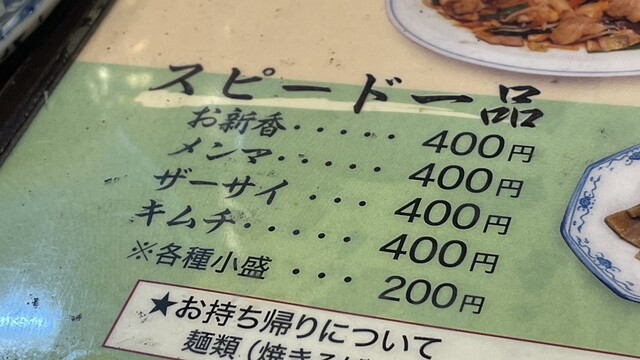 スピード一品
お新香・・・・・400円
メンマ・・・・・400円
ザーサイ・・・400円
キムチ・・・・・400円
※各種小盛・・・200円
★お持ち帰りについて
麺類(焼き